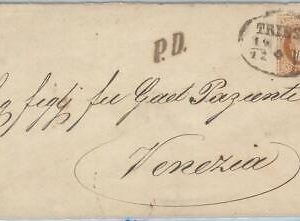 P.D.
TRIES
12
figli fu Gad Pazienti
Venezia